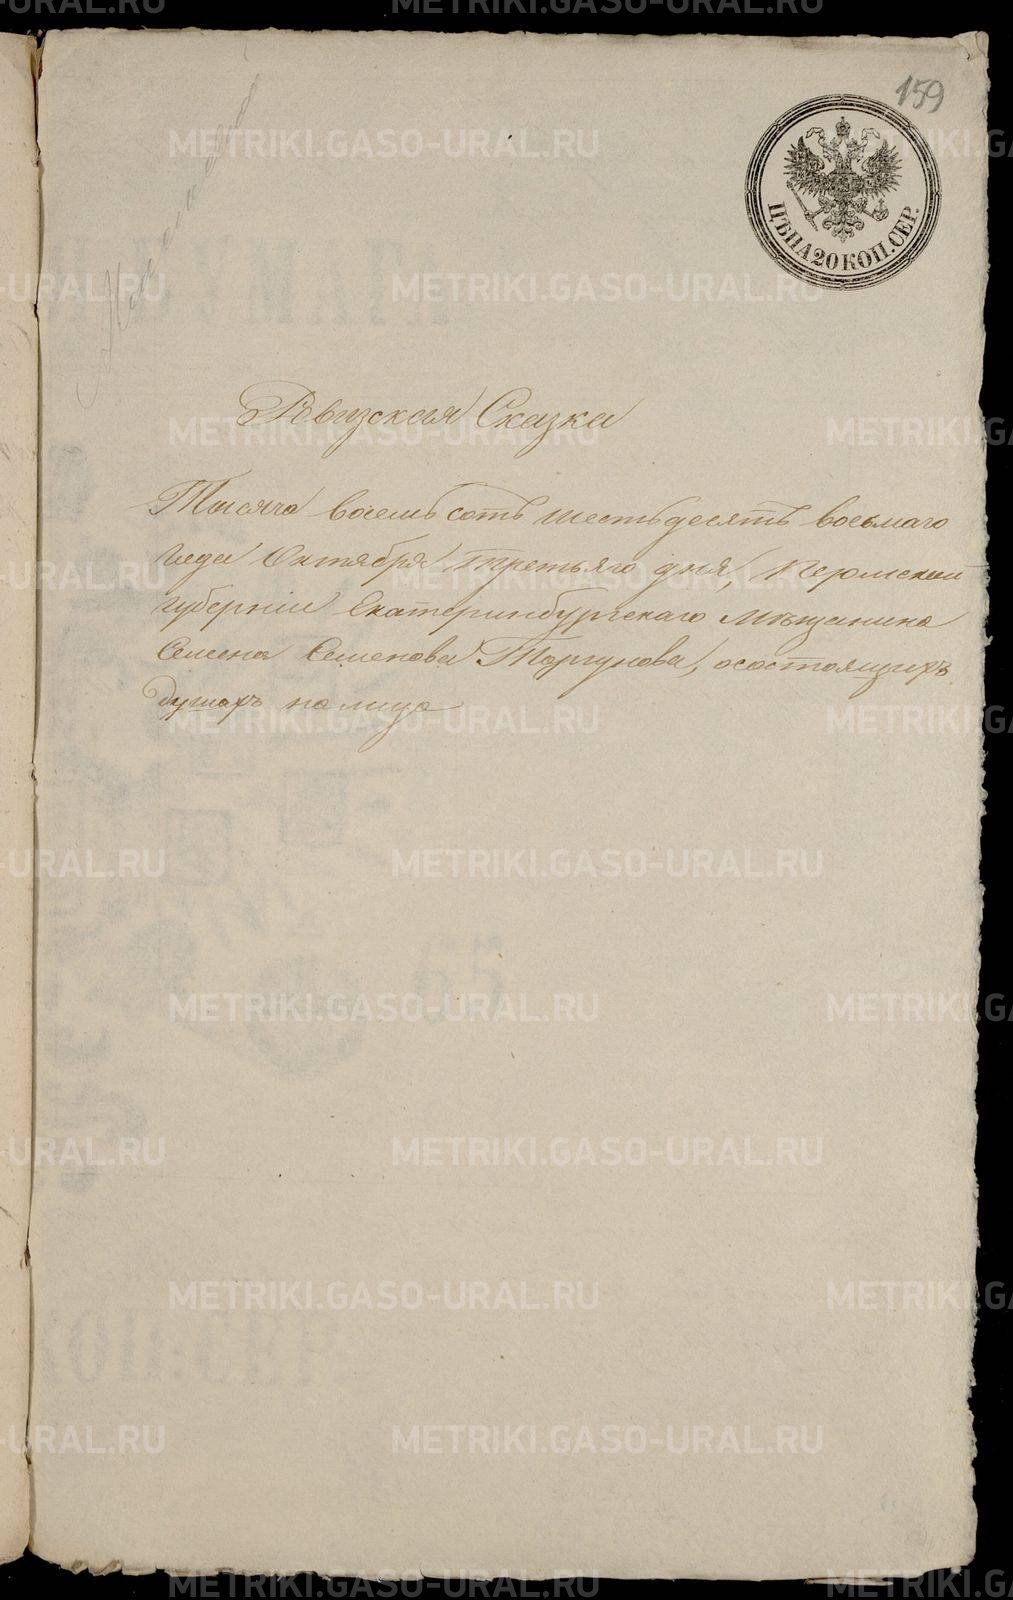 159
ЦѢНА 20 КОП. СЕР.
Рѣвизская Сказка
Тысяча восемь сотъ шестьдесятъ восьмаго
года Октября третьяго дня, Пермской
губерніи Екатеринбургскаго Мѣщанина
Семена Семенова Торгунова, осостоящихъ
душахъ на лицо
METRIKI.GASO-URAL.RU